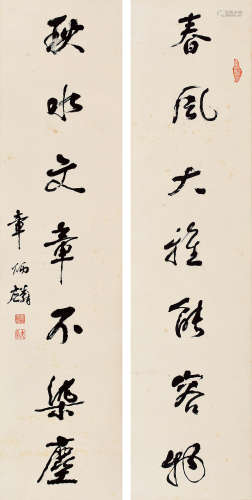 春風大雅能容物
秋水文章不染塵
章炳麟